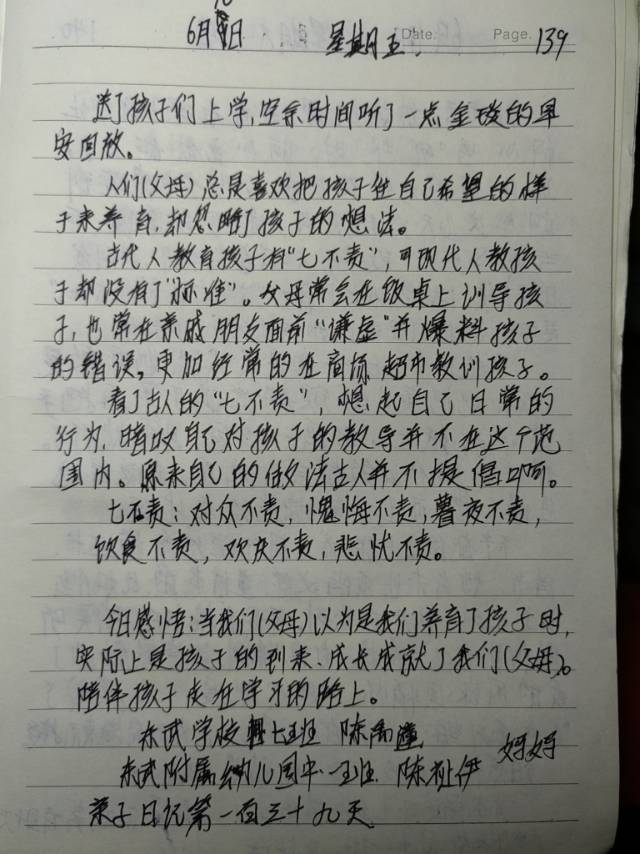 6月10日 星期五 Date. Page. 139
送了孩子们上学,空余时间听了一点金琰的早
安回放。
人们(父母)总是喜欢把孩子往自己希望的样
子来养育,却忽略了孩子的想法。
古代人教育孩子有"七不责",可现代人教孩
子却没有了"标准"。父母常会在饭桌上训导孩
子,也常在亲戚朋友面前"谦虚"并爆料孩子
的错误。更加经常的在商场 超市教训孩子。
看了古人的"七不责",想起自己日常的
行为,暗叹自己对孩子的教导并不在这个范
围内。原来自己的做法古人并不提倡啊。
七不责:对众不责,愧悔不责,暮夜不责,
饮食不责,欢庆不责,悲忧不责。
今日感悟:当我们(父母)以为是我们养育了孩子时,
实际上是孩子的到来、成长成就了我们(父母)。
陪伴孩子走在学习的路上。
东武学校 七班 陈禹 妈妈
东武附属幼儿园中一班 陈祉伊
亲子日记第一百三十九天